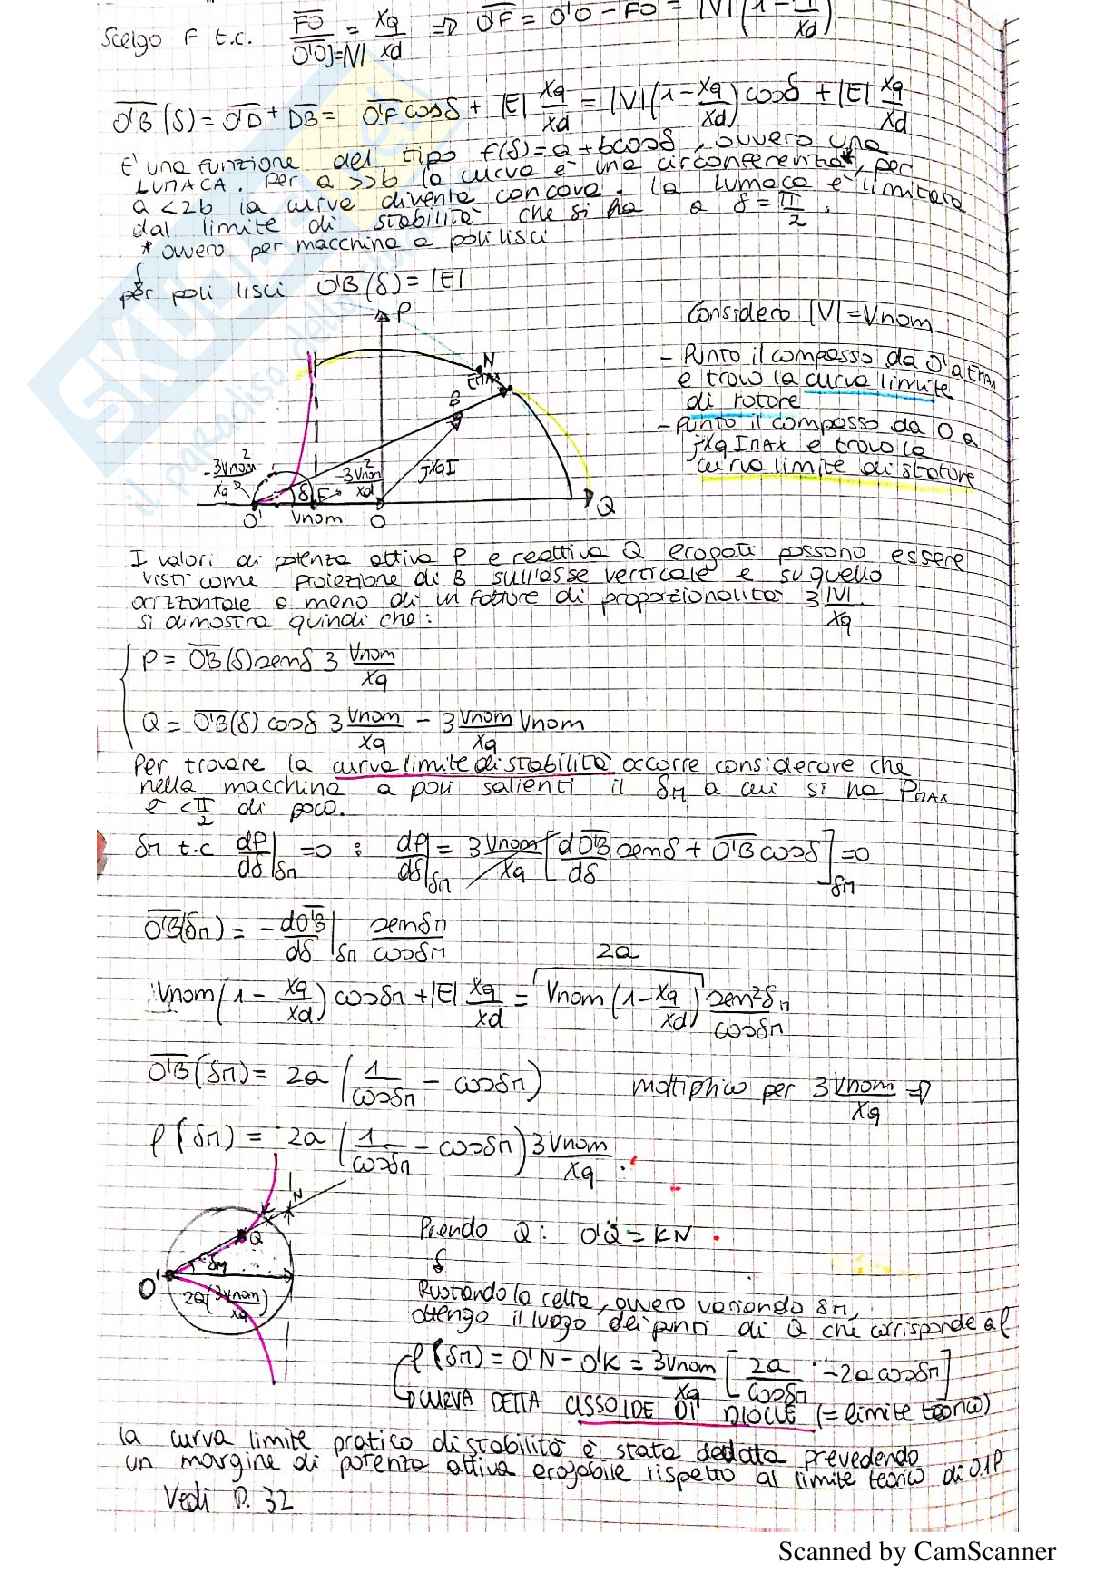 Scelgo F t.c. FO/O'O=|V| = Xq/Xd => O'F = O'O - FO = |V|(1 - Xq/Xd)
O'B(δ) = O'D + DB = O'F cosδ + |E| Xq/Xd = |V|(1-Xq/Xd) cosδ + |E| Xq/Xd
E' una funzione del tipo f(δ)=a+bcosδ, ovvero una
LUMACA. Per a>>b la curva è una circonferenza*, per
a<2b la curva diventa concava. La lumaca è limitata
dal limite di stabilità che si ha a δ=π/2.
* ovvero per macchina a poli lisci
per poli lisci O'B(δ)=|E|
P
Considero |V|=Vnom
- Punto il compasso da O' a EMAX
e trovo la curva limite
di rotore
- Punto il compasso da O a
jXqIMAX e trovo la
curva limite di statore
N
EMAX
B
jXqI
-3Vnom²/Xq
-3Vnom²/Xd
δ
F
O' Vnom O Q
I valori di potenza attiva P e reattiva Q erogati possono essere
visti come proiezione di B sull'asse verticale e su quello
orizzontale a meno di un fattore di proporzionalità 3|V|/Xq
si dimostra quindi che:
P = O'B(δ)senδ 3 Vnom/Xq
Q = O'B(δ) cosδ 3Vnom/Xq - 3Vnom/Xq Vnom
Per trovare la curva limite di stabilità occorre considerare che
nella macchina a poli salienti il δM a cui si ha PMAX
è <π/2 di poco.
δM t.c dP/dδ|δM =0 : dP/dδ|δM = 3Vnom/Xq [dO'B/dδ senδ + O'B cosδ]δM =0
O'B(δM) = -dO'B/dδ|δM senδM/cosδM
2a
Vnom(1 - Xq/Xd) cosδM + |E| Xq/Xd = Vnom(1-Xq/Xd) sen²δM/cosδM
O'B(δM) = 2a (1/cosδM - cosδM) moltiplico per 3Vnom/Xq =>
P(δM) = 2a (1/cosδM - cosδM) 3Vnom/Xq.
N
K
Q
δM
O'
2a(3Vnom/Xq)
Prendo Q: O'Q = KN
Ruotando la retta, ovvero variando δM,
ottengo il luogo dei punti di Q che corrisponde al
P(δM) = O'N - O'K = 3Vnom/Xq [2a/cosδM - 2a cosδM]
CURVA DETTA CISSOIDE DI DIOCLE (= limite teorico)
La curva limite pratico di stabilità è stata dedotta prevedendo
un margine di potenza attiva erogabile rispetto al limite teorico di 0.1P
Vedi P. 32
Scanned by CamScanner